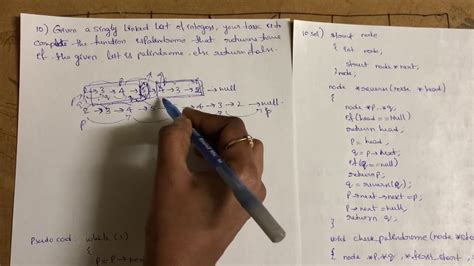 10) Given a singly linked list of integers, your task is to
complete the function isPalindrome that returns true
if the given list is palindrome, else return false.
→ 3 → 4 → → 3 → → null
2 → 3 → 4 → → 4 → 3 → 2 → null
P P
Pseudo cod while (1)
10 sol) struct node
{ int node;
struct node *next;
}
node *reverse (node *head)
{
node *p, *q;
if (head == null)
return head;
p = head;
q = p → next;
if (q == null)
return p;
q = reverse (q);
p → next → next = p;
p → next = null;
return q;
}
void check palindrome (node *
{ node *p, *q, *